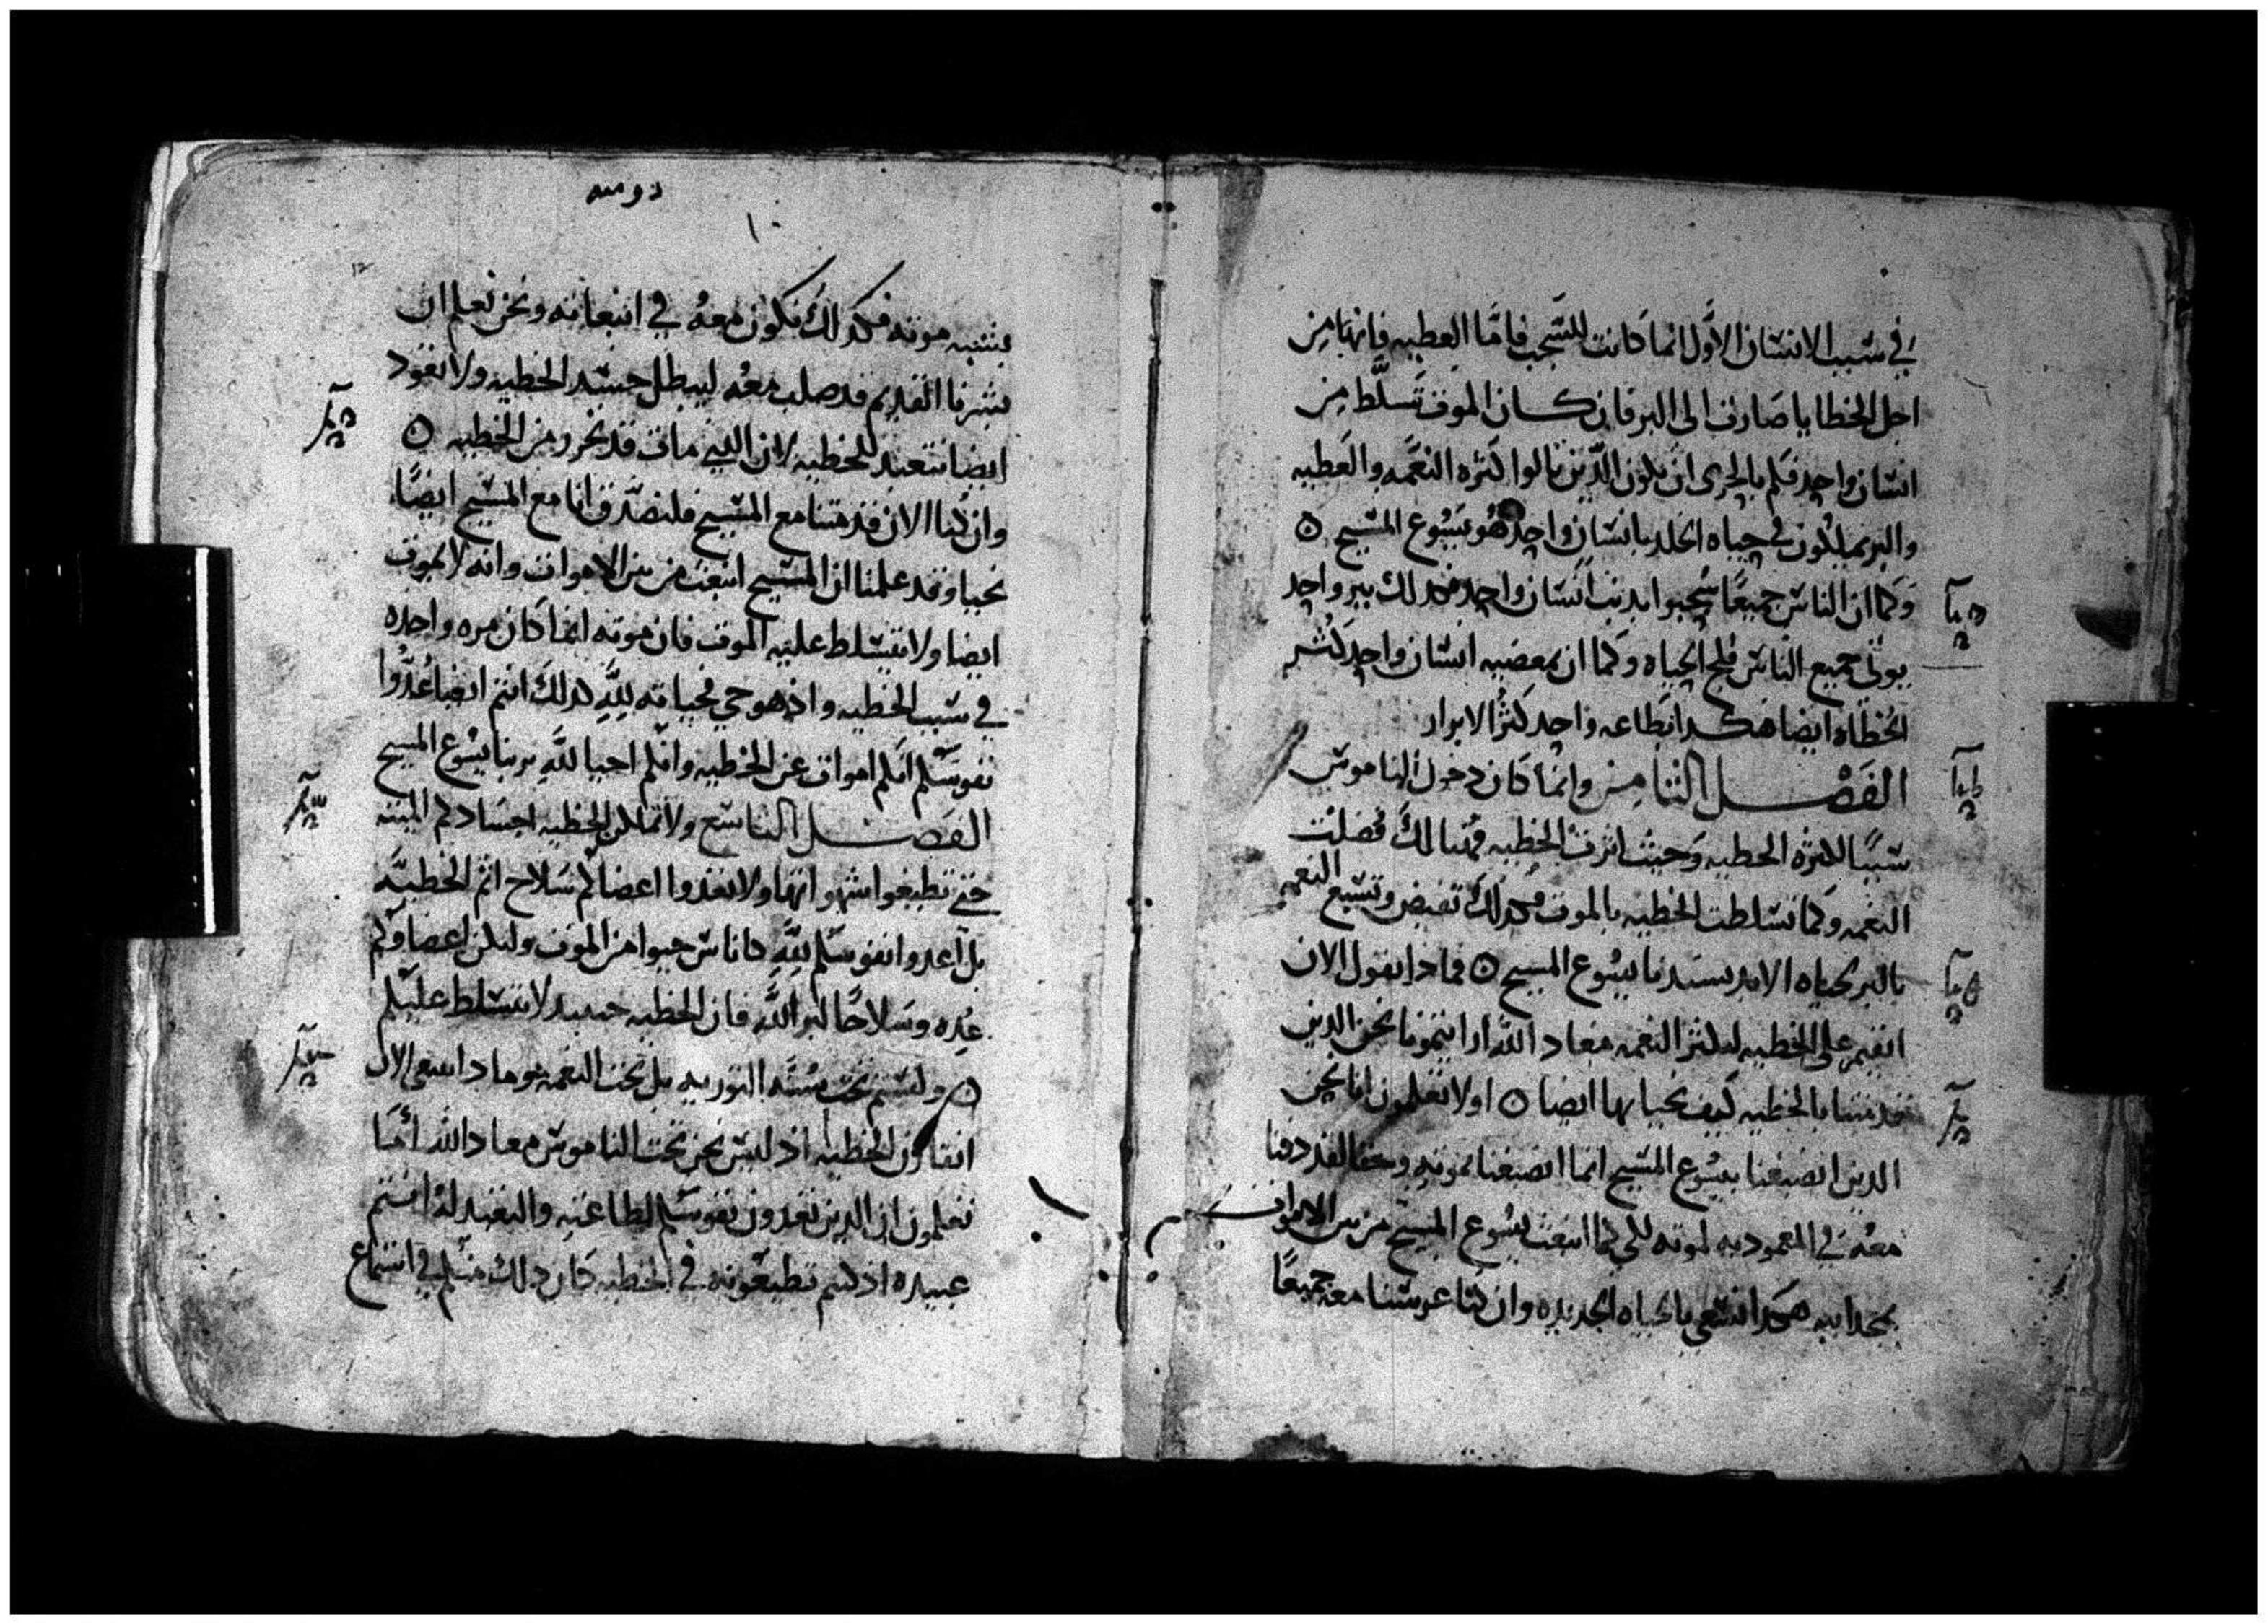 في سبب الانسان الاول انما كانت للشجب فاما العطيه فانها من
اجل الخطايا صارت الى البر فان كان الموت تسلط من
انسان واحد فكم بالحرى ان يكون الذين نالوا كثره النعمه والعطيه
والبر يملكون في حياه الخلد بانسان واحد هو يسوع المسيح ٥
وكما ان الناس جميعا شجبوا بذنب انسان واحد فكذلك ببر واحد
يوتى جميع الناس فلج الحياه وكما ان بمعصيه انسان واحد كثر
الخطاه ايضا هكذا بطاعه واحد كثر الابرار
الفصل الثامن وانما كان دخول الناموس
سببا لكثره الخطيه وحيث اثرت الخطيه فهنالك فضلت
النعمه وكما تسلطت الخطيه بالموت فكذلك تفيض وتتسع النعمه
بالبر بحياه الابد بسيدنا يسوع المسيح ٥ فماذا نقول الان
انقيم على الخطيه لتكثر النعمه معاد الله اذا ايتمونا نحن الذين
قد متنا بالخطيه كيف نحيا بها ايضا ٥ اولا تعلمون انا نحن
الذين انصبغنا بيسوع المسيح انما انصبغنا بموته وحقا لقد دفنا
معه في المعموديه لموته لكي كما انبعث يسوع المسيح من بين الاموات
بمجد ابيه هكذا نسعى بالحياه الجديده وان كنا غرسنا معه جميعا
رومية
١٠
بشبه موته فكذلك نكون معه في انبعاثه ونحن نعلم ان
بشرنا القديم قد صلب معه ليبطل جسد الخطيه ولا نعود
ايضا نتعبد للخطيه لان الذي مات قد تحرر من الخطيه ٥
وان كنا الان قد متنا مع المسيح فلنصدق انا مع المسيح ايضا
نحيا وقد علمنا ان المسيح انبعث من بين الاموات وانه لا يموت
ايضا ولا يتسلط عليه الموت فان موته انما كان مره واحده
في سبب الخطيه واذ هو حي فحياته لله كذلك انتم ايضا عدوا
نفوسكم انكم اموات عن الخطيه وانكم احيا لله بربنا يسوع المسيح
الفصل التاسع ولا تملكن الخطيه اجسادكم الميته
حتى تطيعوا شهواتها ولا تعدوا اعضاكم سلاح اثم الخطيه
بل اعدوا نفوسكم لله كاناس حيوا من الموت ولتكن اعضاوكم
عده وسلاحا لبر الله فان الخطيه حينيد لا تتسلط عليكم
٥ ولستم تحت سنه التوريه بل تحت النعمه فماذا نسعى الان
انقارن الخطيه اذ ليس نحن تحت الناموس معاد الله اما
تعلمون ان الذين تعدون نفوسكم لطاعته والتعبد له انتم
عبيده اذ كنتم تطيعونه في الخطيه كان ذلك منكم في استماع